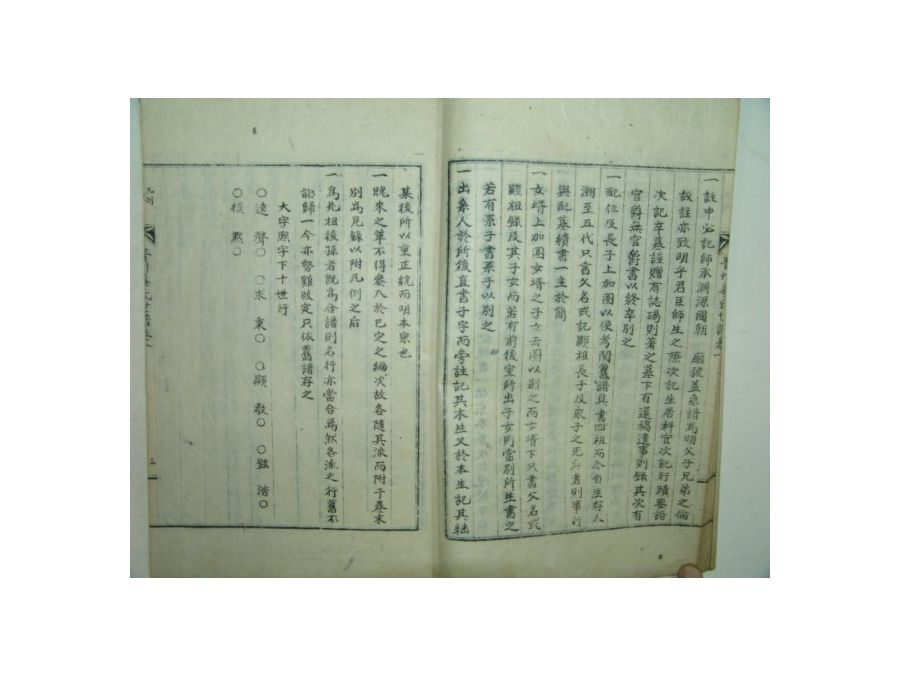 一註中必記師承淵源國朝 廟號盖系譜爲明父子兄弟之倫
故註亦致明乎君臣師生之際次記生居科官次記行蹟要語
次記卒墓誌贈有誌碣則著之墓下有遺稿遺事則錄其次有
官爵無官爵書以終卒別之
一配位及長子上加圈以便考閱舊譜具書四祖而今自生存人
溯至五代只書父名或記顯祖長子及衆子之先后者則事行
與配墓績書一主於簡
一女壻上加圈女壻之子女去圈以別之而女壻下只書父名或
顯祖錄及其子女而若有前後室所出子女則當別所生書之
若有系子書系子以別之
一出系人於所後直書子字而旁註記其本生又於本生記其絀
某後所以重正統而明本宗也
一晩來之單不得參入於已定之編次故各隨其派而附于卷末
別爲凡錄以附凡例之后
一爲先祖後孫者旣爲合譜則名行亦當合爲然各派之行舊不
能歸一今亦勢難改定只依舊譜存之
大字熙字下十世行
○遠 聲○ ○求 秉○ ○顯 敬○ ○鉉 浩○
○根 默○
凡例
三